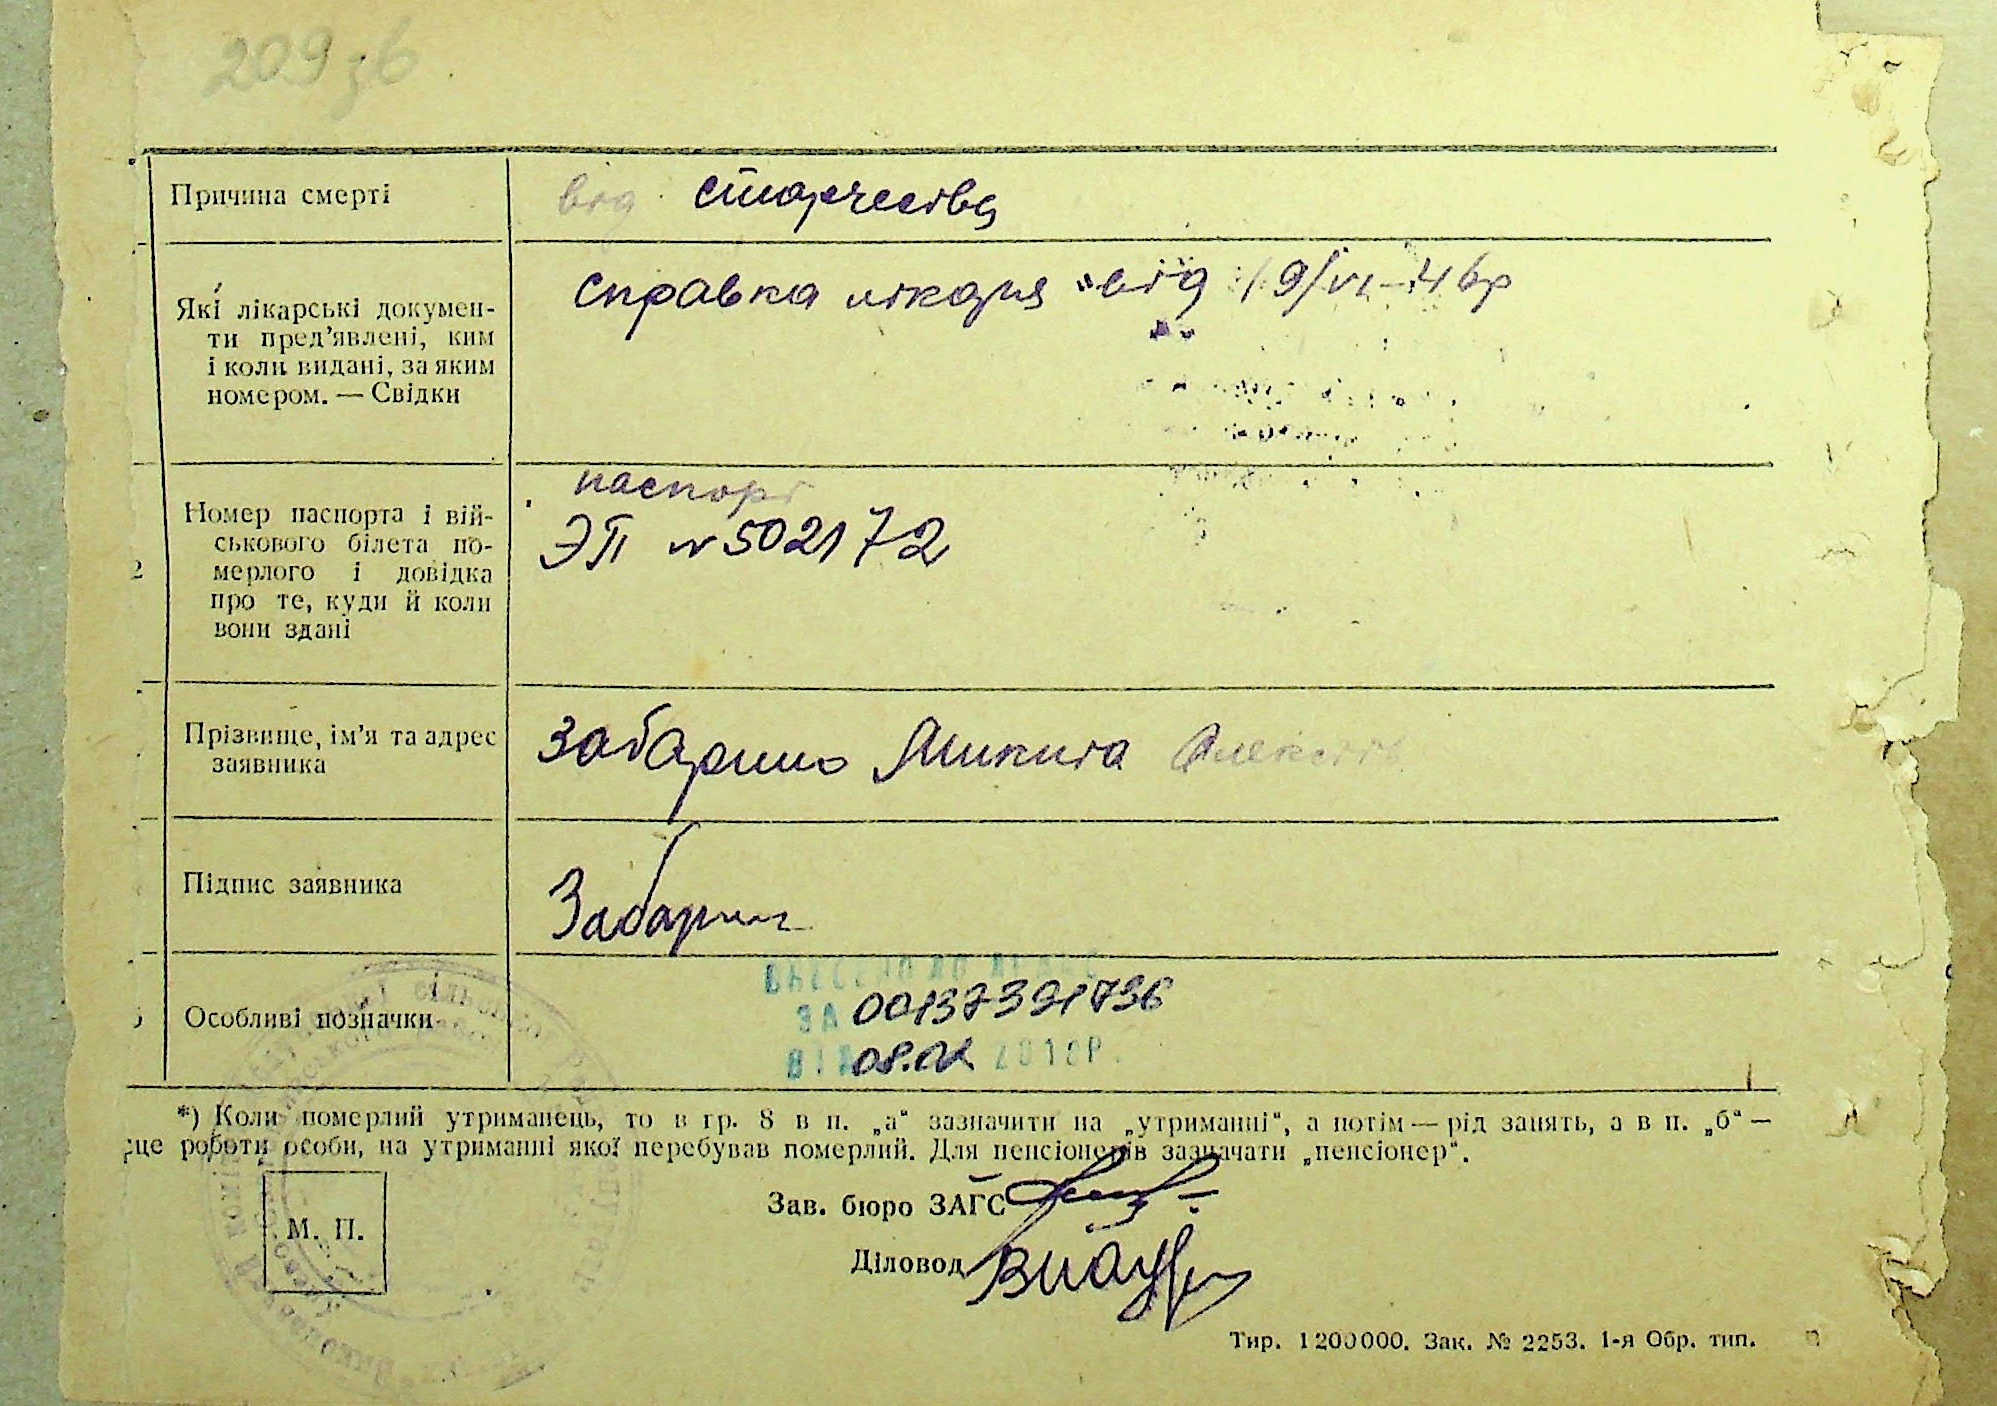 209 зв
Причина смерті
від старчества
Які лікарські докумен-
ти пред’явлені, ким
і коли видані, за яким
номером. — Свідки
справка лікаря від 19/VI-41 р
Номер паспорта і вій-
ськового білета по-
мерлого і довідка
про те, куди й коли
вони здані
паспорт
ЭП № 502172
Прізвище, ім’я та адрес
заявника
Забарило Микита
Підпис заявника
Забарило
Особливі позначки
ЗА 00137391736
ВІД 08.
*) Коли померлий утриманець, то в гр. 8 в п. „а“ зазначити на „утриманні“, а потім — рід занять, а в п. „б“ —
це роботи особи, на утриманні якої перебував померлий. Для пенсіонерів зазначати „пенсіонер“.
М. П.
Зав. бюро ЗАГС
Діловод
Тир. 1200000. Зак. № 2253. 1-я Обр. тип.